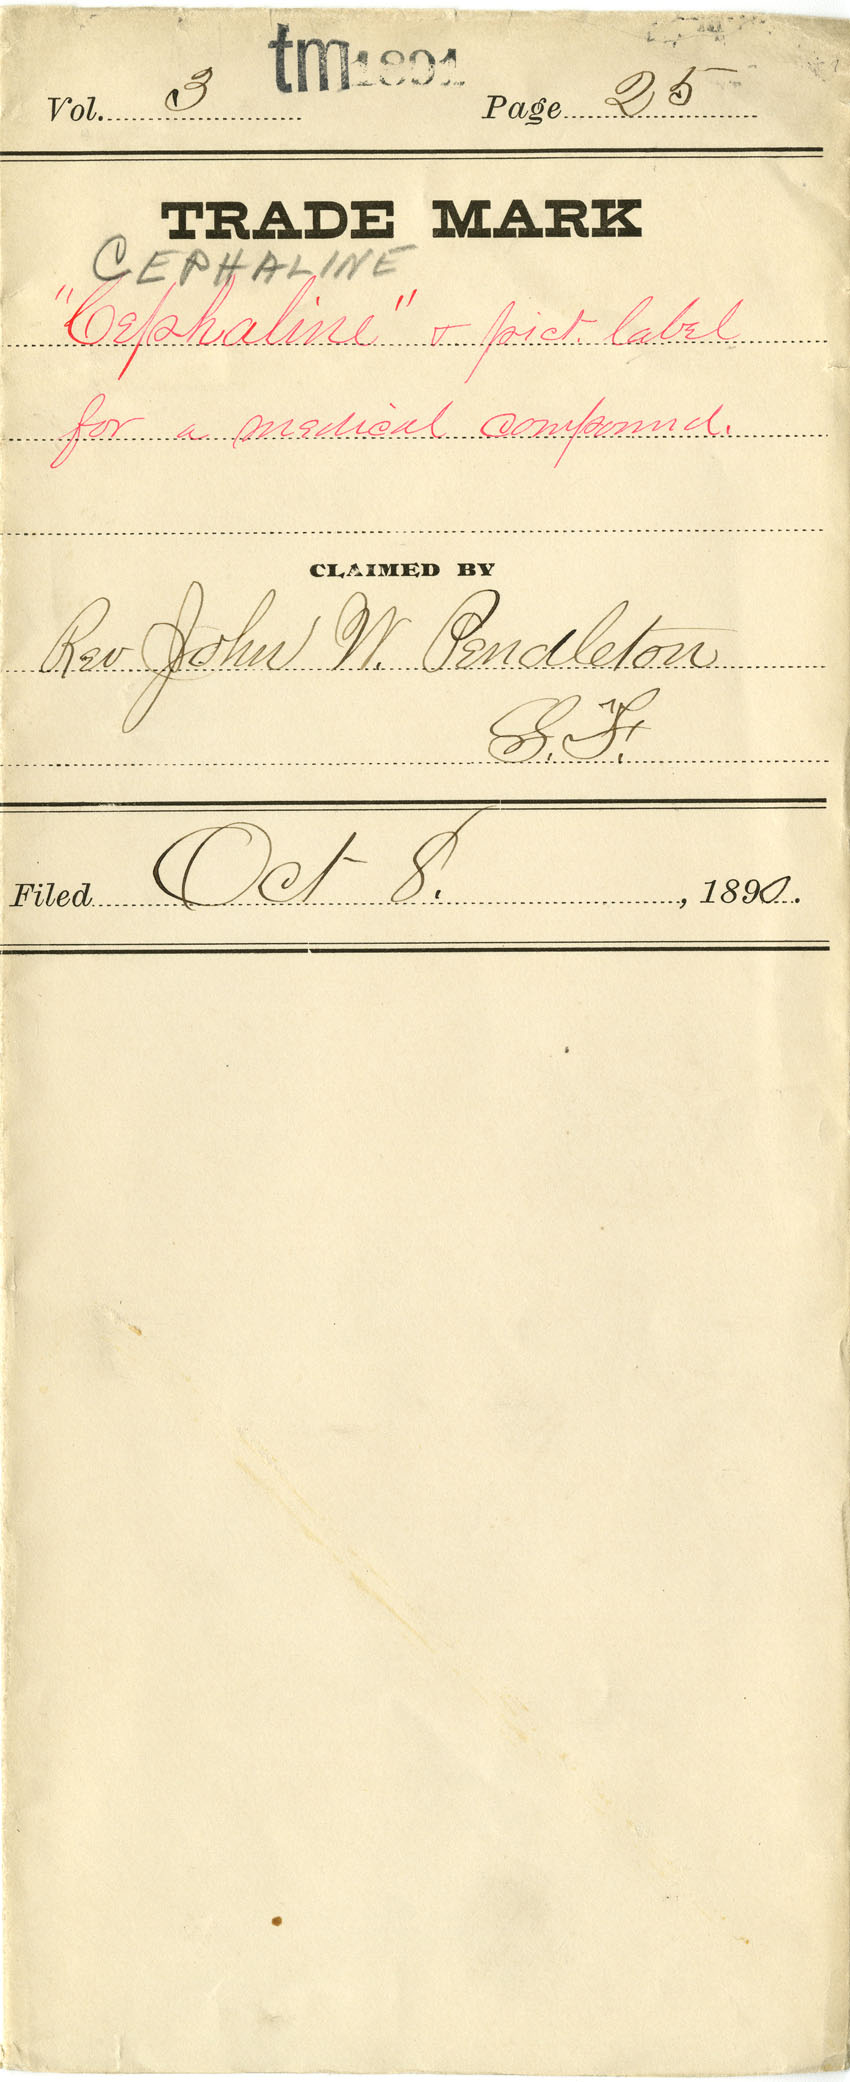 tm1891
Vol. 3 Page 25
TRADE MARK
CEPHALINE
"Cephaline" & pict. label
for a medical compound.
CLAIMED BY
Rev John W. Pendleton
S.F.
Filed Oct 8. , 1890.